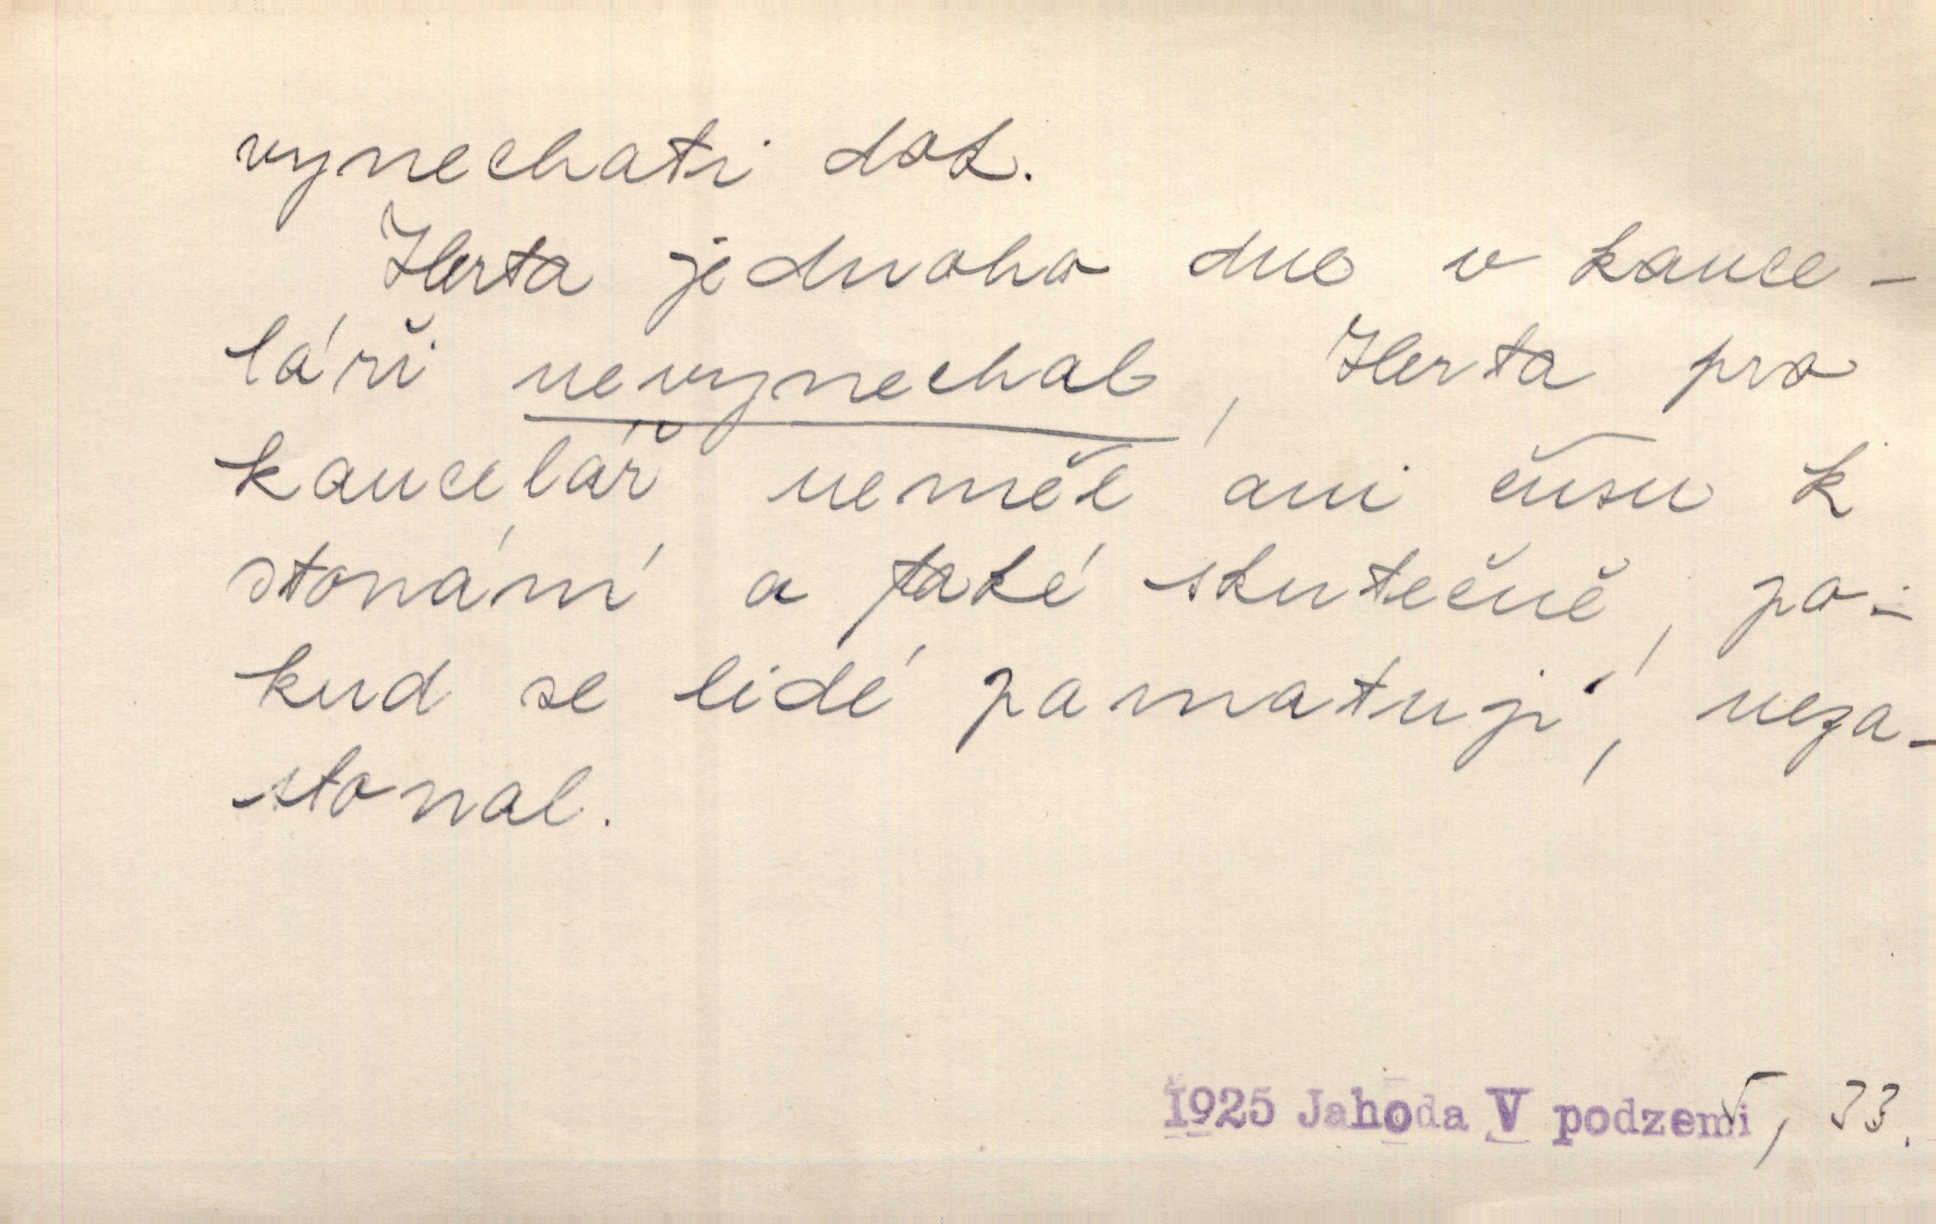 vynechati dok.
Herta jednoho dne v kance-
láři nevynechal, Herta pro
kancelář neměl ani času k
stonání a také skutečně, po-
kud se lidé pamatují, neza-
stonal.
1925 Jahoda V podzemí, 33.